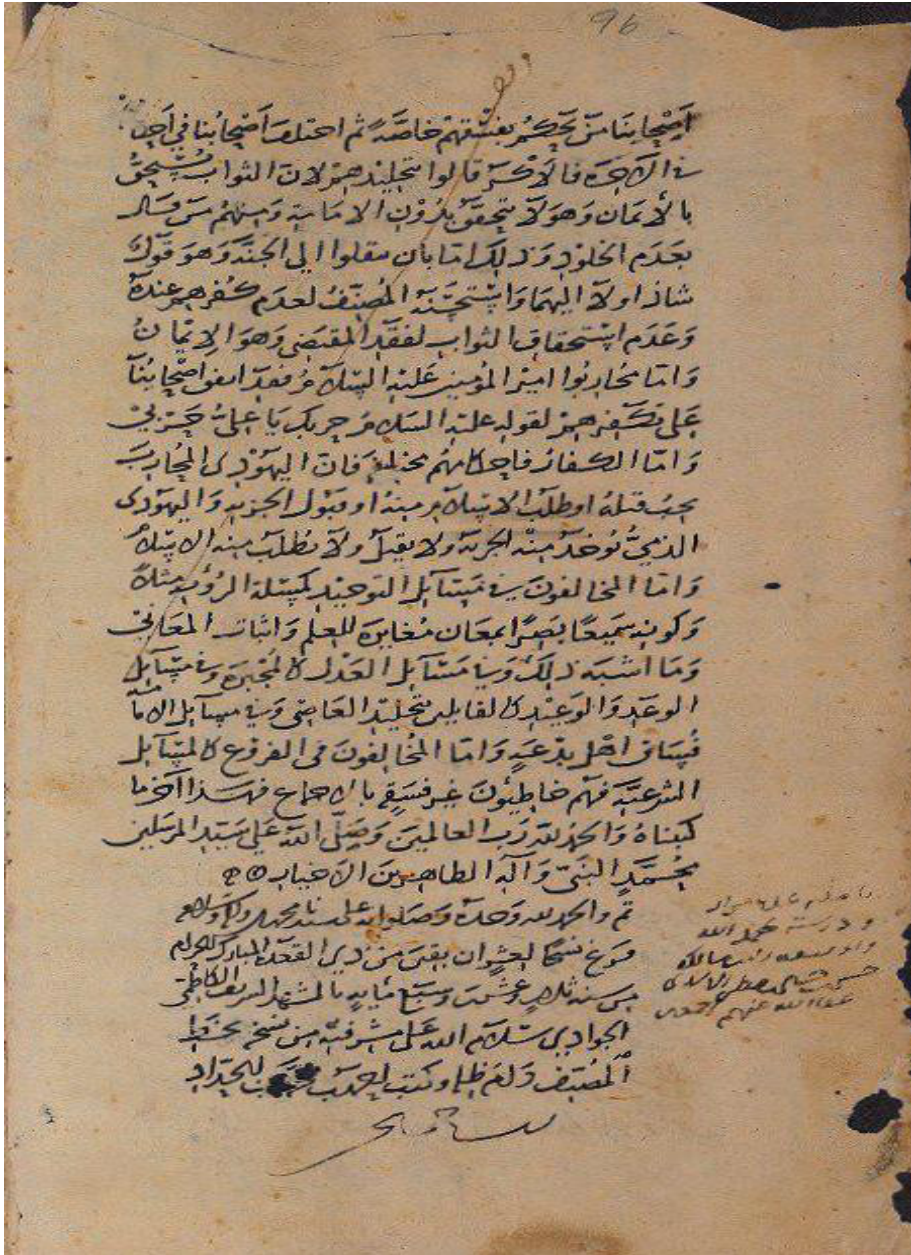 96
أصحابنا من يحكم بفسقهم خاصة ثم اختلف أصحابنا في أحكا
في الآخرة فالأكثر قالوا بتخليدهم لأن الثواب مستحق
بالإيمان وهو لا يتحقق بدون الإمامة ومنهم من قال
بعدم الخلود وذلك إما بأن ينقلوا إلى الجنة وهو قول
شاذ أو لا إليهما واستحسنه المصنف لعدم كفرهم عنده
وعدم استحقاق الثواب لفقد المقتضى وهو الإيمان
وأما محاربوا أمير المؤمنين عليه السلام فقد اتفق أصحابنا
على تكفيرهم لقوله عليه السلام حربك يا علي حربي
وأما الكفار فأحكامهم مختلفة فان اليهودي المحارب
يجب قتله أو طلب الإسلام منه أو قبول الجزية واليهودي
الذمي تؤخذ منه الجزية ولا يقتل ولا يطلب منه الإسلام
وأما المخالفون في مسايل التوحيد كمسئلة الرؤية مثلا
وكونه سميعا بصيرا بمعان مغايرة للعلم وإثبات المعاني
وما أشبه ذلك وفي مسايل العدل كالمجبرة وفي مسايل
الوعد والوعيد كالقايلين بتخليد العاصي وفي مسايل الإمامة
فساق أهل بدعة وأما المخالفون في الفروع كالمسايل
الشرعية فهم خاطئون غير فسقة بالاجماع فهذا آخر ما
كتبناه والحمد لله رب العالمين وصلى الله على سيد المرسلين
محمد النبي وآله الطاهرين الأخيار
تم والحمد لله وحده وصلواته على سيدنا محمد وآله وسلامه
فرغ نسخا لعشر ان بقين من ذي القعدة المبارك الحرام
من سنة ثلاث وعشرين وسبع مأية بالمشهد الشريف الكاظمي
الجوادي سلام الله على مشرفيه من نسخة بخط
المصنف دام ظله وكتب احمد بن الحداد
ودرسته بحمد الله
عفا الله عنهم